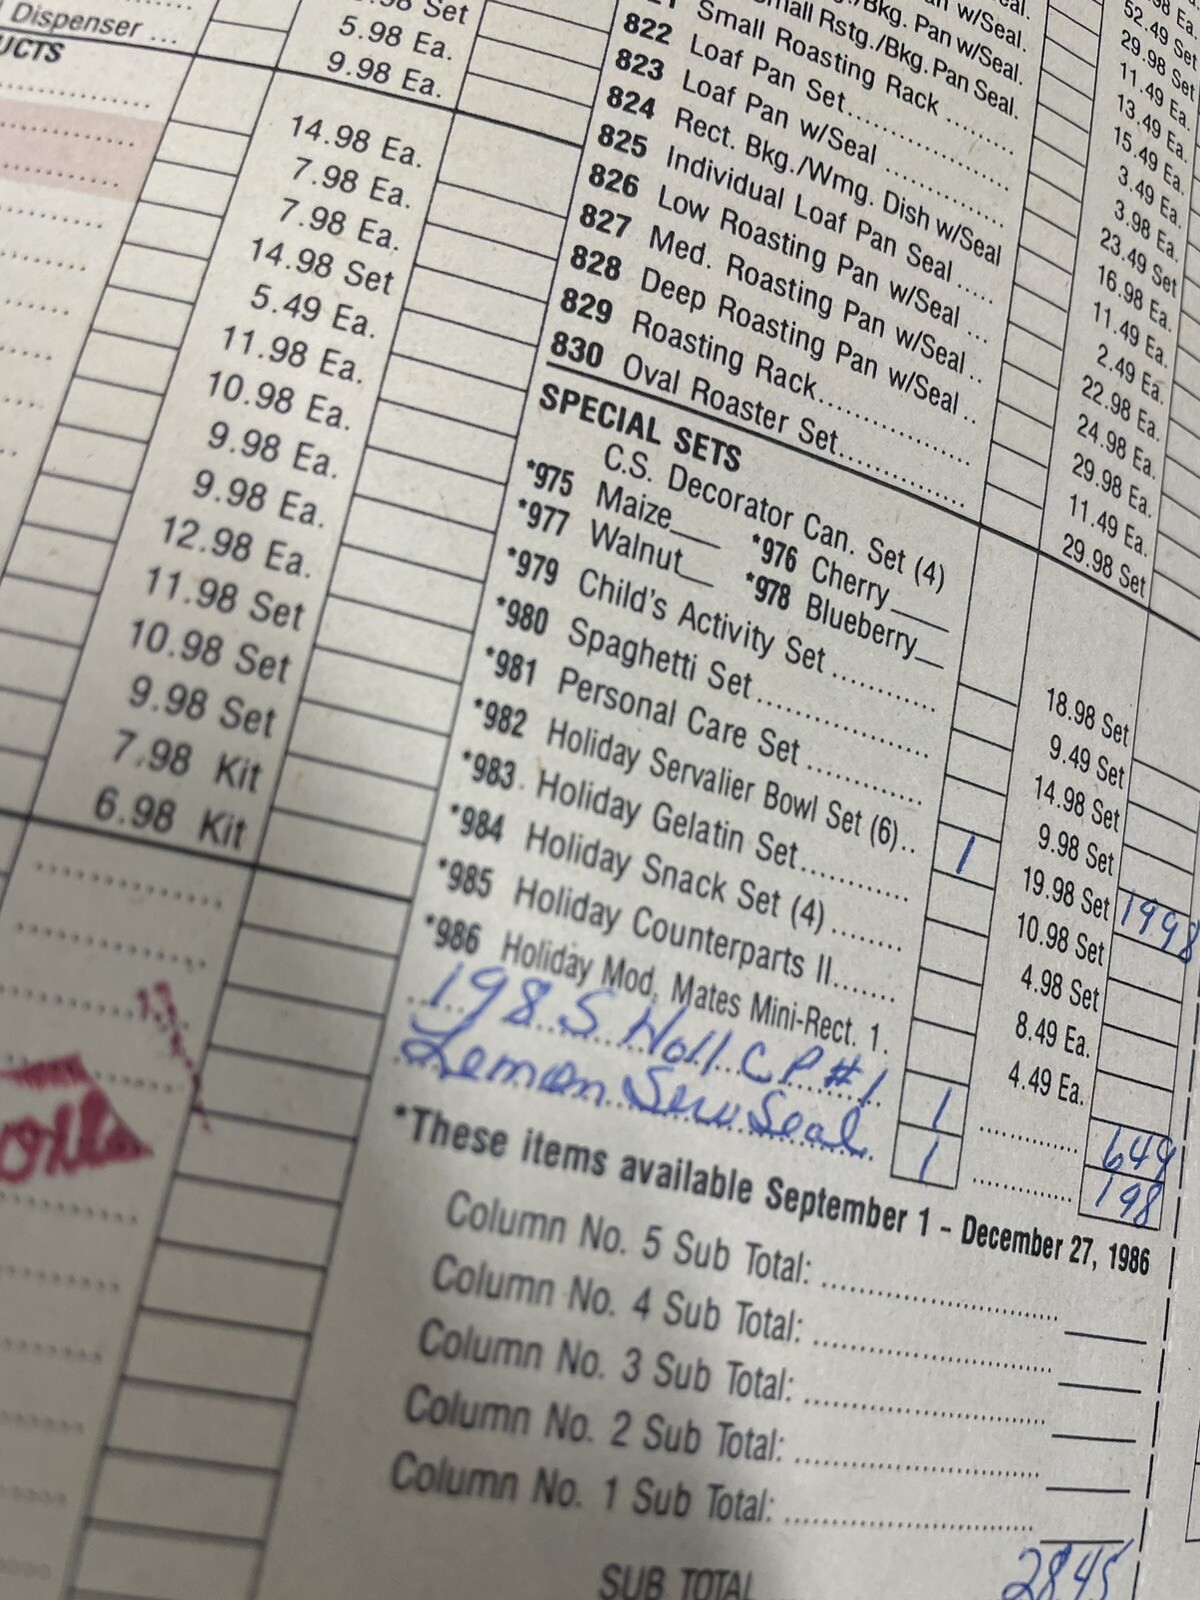 Dispenser ...
UCTS
Set
5.98 Ea.
9.98 Ea.
14.98 Ea.
7.98 Ea.
7.98 Ea.
14.98 Set
5.49 Ea.
11.98 Ea.
10.98 Ea.
9.98 Ea.
9.98 Ea.
12.98 Ea.
11.98 Set
10.98 Set
9.98 Set
7.98 Kit
6.98 Kit
w/Seal.
Bkg. Pan w/Seal.
Small Rstg./Bkg. Pan Seal.
Small Roasting Rack ........
822 Loaf Pan Set..............
823 Loaf Pan w/Seal ............
824 Rect. Bkg./Wmg. Dish w/Seal
825 Individual Loaf Pan Seal .....
826 Low Roasting Pan w/Seal ...
827 Med. Roasting Pan w/Seal ..
828 Deep Roasting Pan w/Seal ..
829 Roasting Rack................
830 Oval Roaster Set..............
Ea.
52.49 Set
29.98 Set
11.49 Ea.
13.49 Ea.
15.49 Ea.
3.49 Ea.
3.98 Ea.
23.49 Set
16.98 Ea.
11.49 Ea.
2.49 Ea.
22.98 Ea.
24.98 Ea.
29.98 Ea.
11.49 Ea.
29.98 Set
SPECIAL SETS
C.S. Decorator Can. Set (4)
*975 Maize___ *976 Cherry____
*977 Walnut__ *978 Blueberry__ 18.98 Set
*979 Child's Activity Set .......... 9.49 Set
*980 Spaghetti Set................. 14.98 Set
*981 Personal Care Set ........... 9.98 Set
*982 Holiday Servalier Bowl Set (6).. 1 19.98 Set 1998
*983 Holiday Gelatin Set........... 10.98 Set
*984 Holiday Snack Set (4) ........ 4.98 Set
*985 Holiday Counterparts II....... 8.49 Ea.
*986 Holiday Mod. Mates Mini-Rect. 1. 4.49 Ea.
198 S Holl. C P #1 1 649
Lemon Serv Seal 1 198
*These items available September 1 – December 27, 1986
Column No. 5 Sub Total:
Column No. 4 Sub Total:
Column No. 3 Sub Total:
Column No. 2 Sub Total:
Column No. 1 Sub Total:
SUB TOTAL 2845